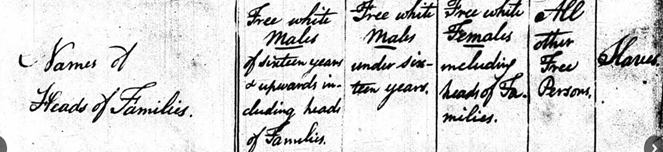 Names of
Heads of Families.
Free white
Males
of sixteen years
& upwards in-
cluding heads
of Families.
Free white
Males
under six-
teen years.
Free white
Females
including
heads of Fa-
milies.
All
other
Free
Persons.
Slaves.